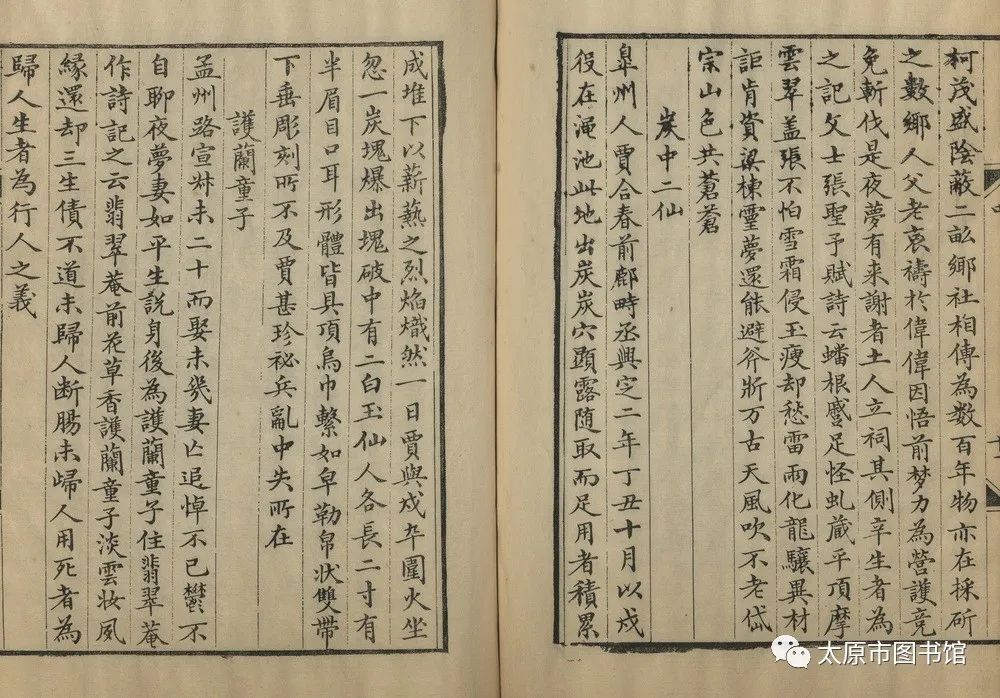 柯茂盛陰蔽二畝鄉社相傳為数百年物亦在採斫
之數鄉人父老哀禱於偉偉因悟前梦力為營護竟
免斬伐是夜夢有来謝者土人立祠其側辛生者為
之記文士張聖予賦詩云蟠根蹙足怪虬蔵平頂摩
雲翠盖張不怕雪霜侵玉瘦却愁雷雨化龍驤異材
詎肯資梁棟靈夢還能避斧斨万古天風吹不老岱
宗山色共蒼蒼
炭中二仙
皐州人賈合春前鄜畤丞興定二年丁丑十月以戍
役在渑池此地出炭炭穴顕露随取而足用者積累
成堆下以薪熱之烈焰熾然一日賈與戍卒圍火坐
忽一炭塊爆出塊破中有二白玉仙人各長二寸有
半眉目口耳形體皆具頂烏巾繫如皁勒帛状雙帶
下垂彫刻所不及賈甚珍祕兵亂中失所在
護蘭童子
孟州路宣叔未二十而娶未幾妻亡追悼不已鬱不
自聊夜夢妻如平生説身後為護蘭童子住翡翠菴
作詩記之云翡翠菴前花草香護蘭童子淡雲妝風
緣還却三生債不道未歸人断腸未歸人用死者為
歸人生者為行人之義
太原市图书馆